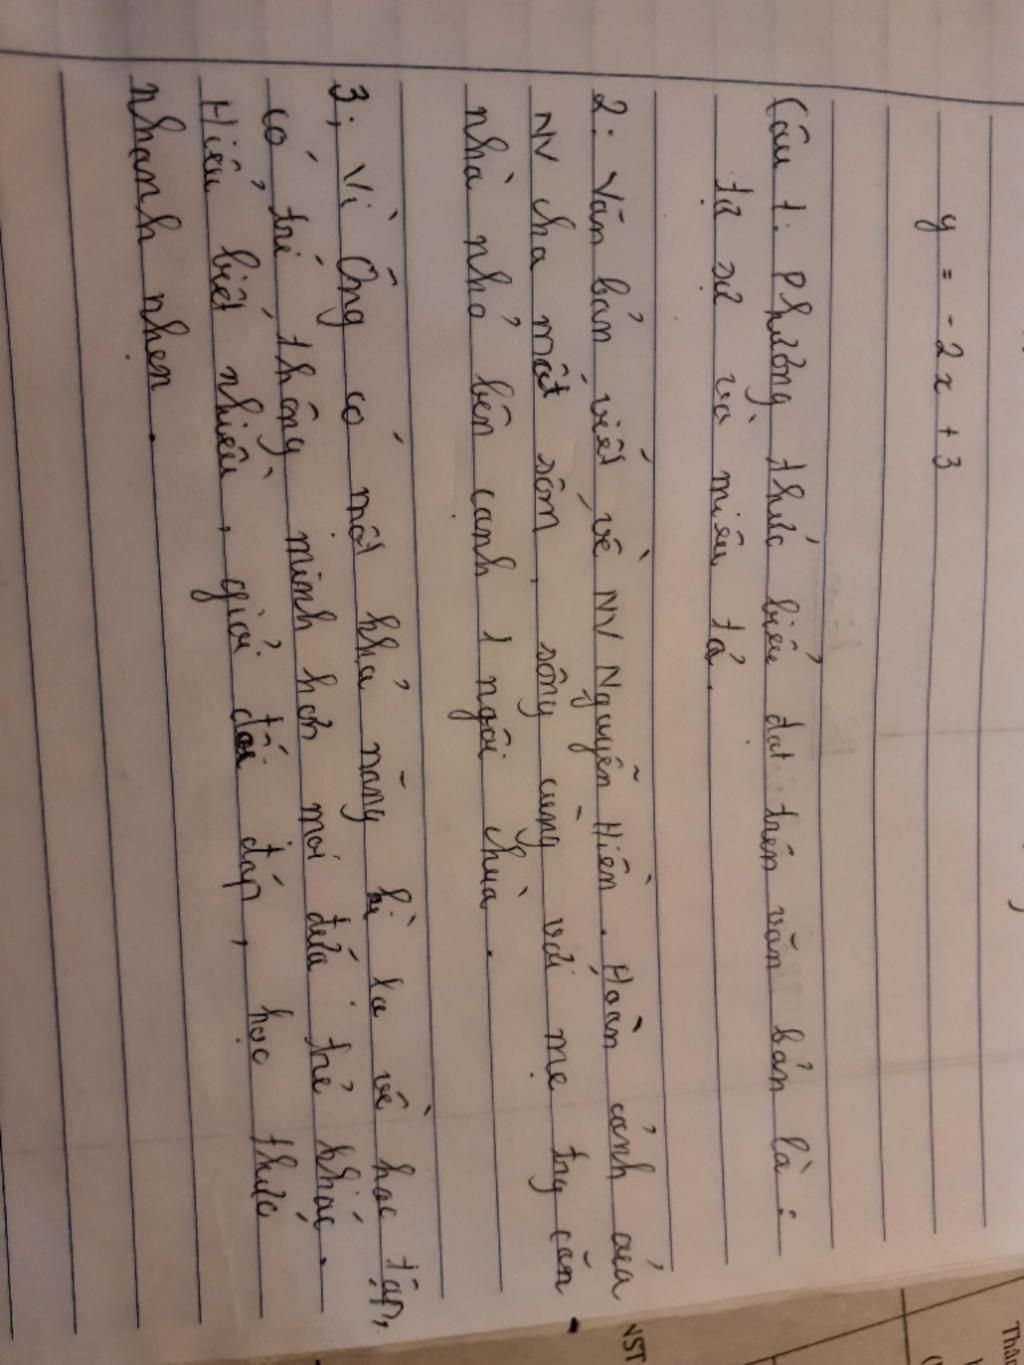 y = -2x + 3
Câu 1: Phương thức biểu đạt trên văn bản là:
tự sự và miêu tả.
2: Văn bản viết về NV Nguyễn Hiền. Hoàn cảnh của
NV cha mất sớm, sống cùng với mẹ trg căn
nhà nhỏ bên cạnh 1 ngôi chùa.
3; Vì Ông có một khả năng kì lạ về học tập,
có trí thông minh hơn mọi đứa trẻ khác.
Hiểu biết nhiều, giỏi đối đáp, học thức
nhanh nhẹn.
NST